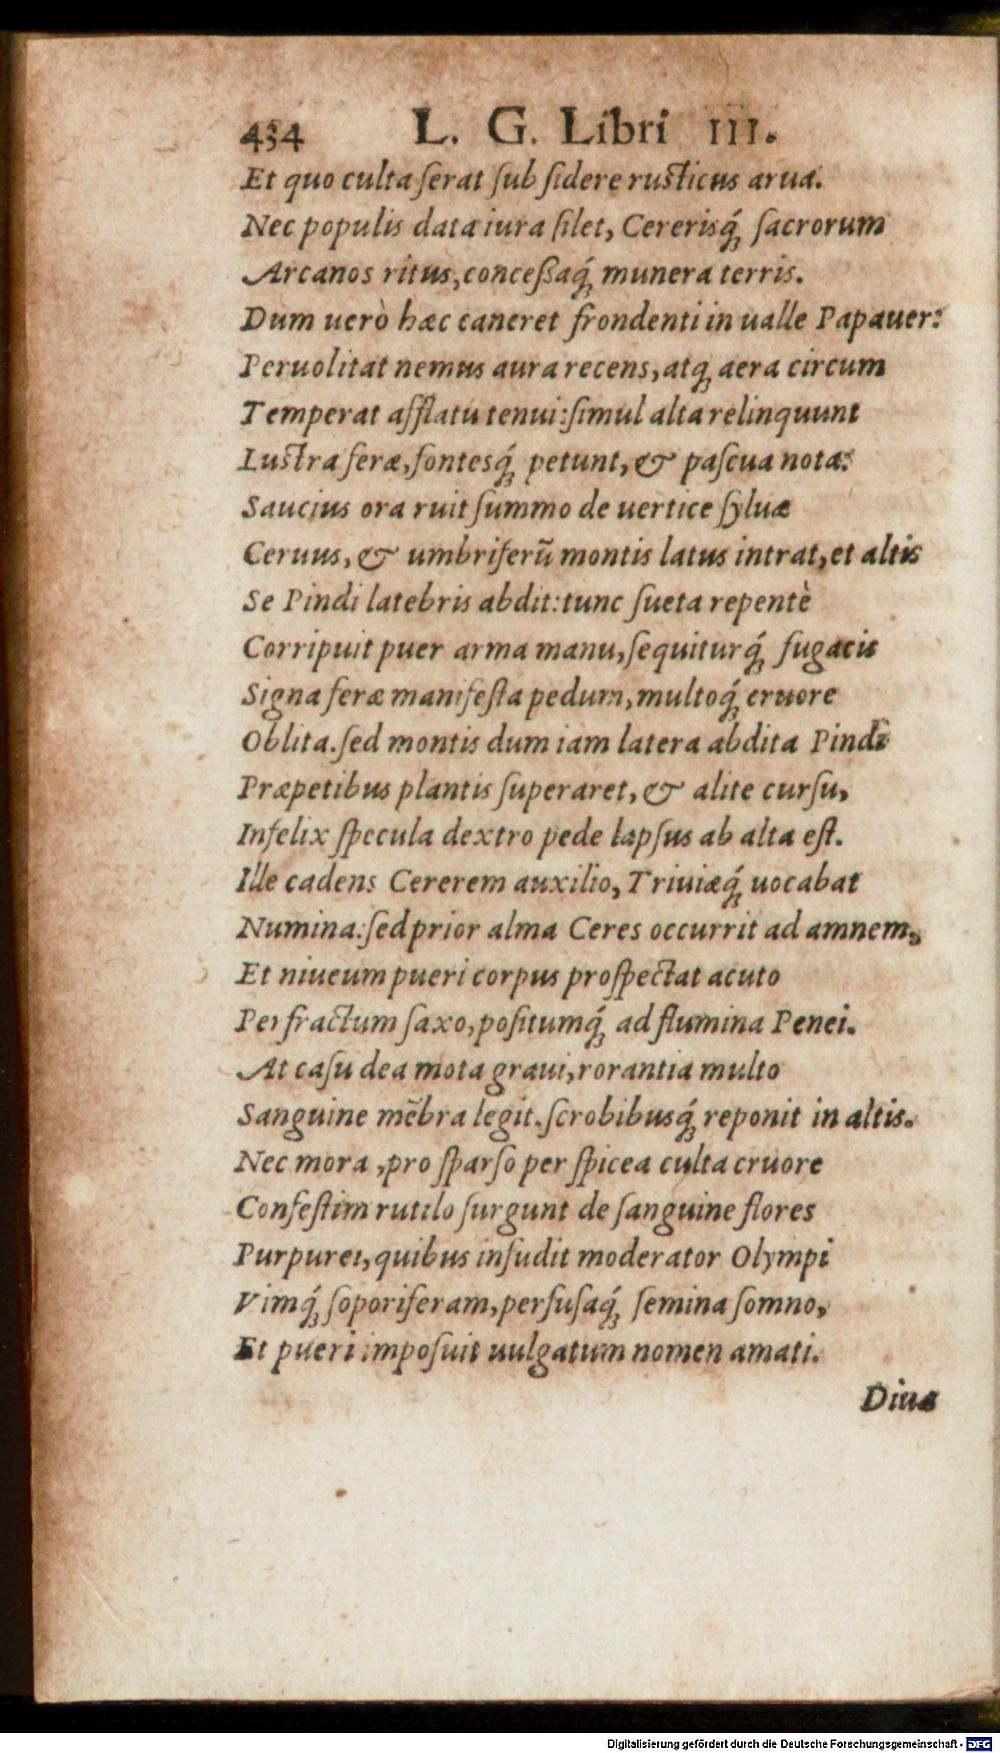 434 L. G. Libri III.
Et quo culta ſerat ſub ſidere rusticus arua.
Nec populis data iura ſilet, Cererisq́; ſacrorum
Arcanos ritus, conceßaq́; munera terris.
Dum uerò hæc caneret frondenti in ualle Papauer:
Peruolitat nemus aura recens, atq; aera circum
Temperat afflatu tenui: ſimul alta relinquunt
Lustra feræ, fontesq́; petunt, & paſcua nota:
Saucius ora ruit ſummo de uertice ſyluæ
Ceruus, & umbriferũ montis latus intrat, et altis
Se Pindi latebris abdit: tunc ſueta repentè
Corripuit puer arma manu, ſequiturq́; fugacis
Signa feræ manifeſta pedum, multoq́; cruore
Oblita. ſed montis dum iam latera abdita Pindi
Præpetibus plantis ſuperaret, & alite curſu,
Infelix ſpecula dextro pede lapſus ab alta eſt.
Ille cadens Cererem auxilio, Triuiæq́; uocabat
Numina: ſed prior alma Ceres occurrit ad amnem,
Et niueum pueri corpus proſpectat acuto
Perfractum ſaxo, poſitumq́; ad flumina Penei.
At caſu dea mota graui, rorantia multo
Sanguine mẽbra legit. ſcrobibusq́; reponit in altis.
Nec mora, pro ſparſo per ſpicea culta cruore
Confeſtim rutilo ſurgunt de ſanguine flores
Purpurei, quibus infudit moderator Olympi
Vimq́; ſoporiferam, perfuſaq́; ſemina ſomno,
Et pueri impoſuit uulgatum nomen amati.
Diuæ
Digitalisierung gefördert durch die Deutsche Forschungsgemeinschaft - DFG